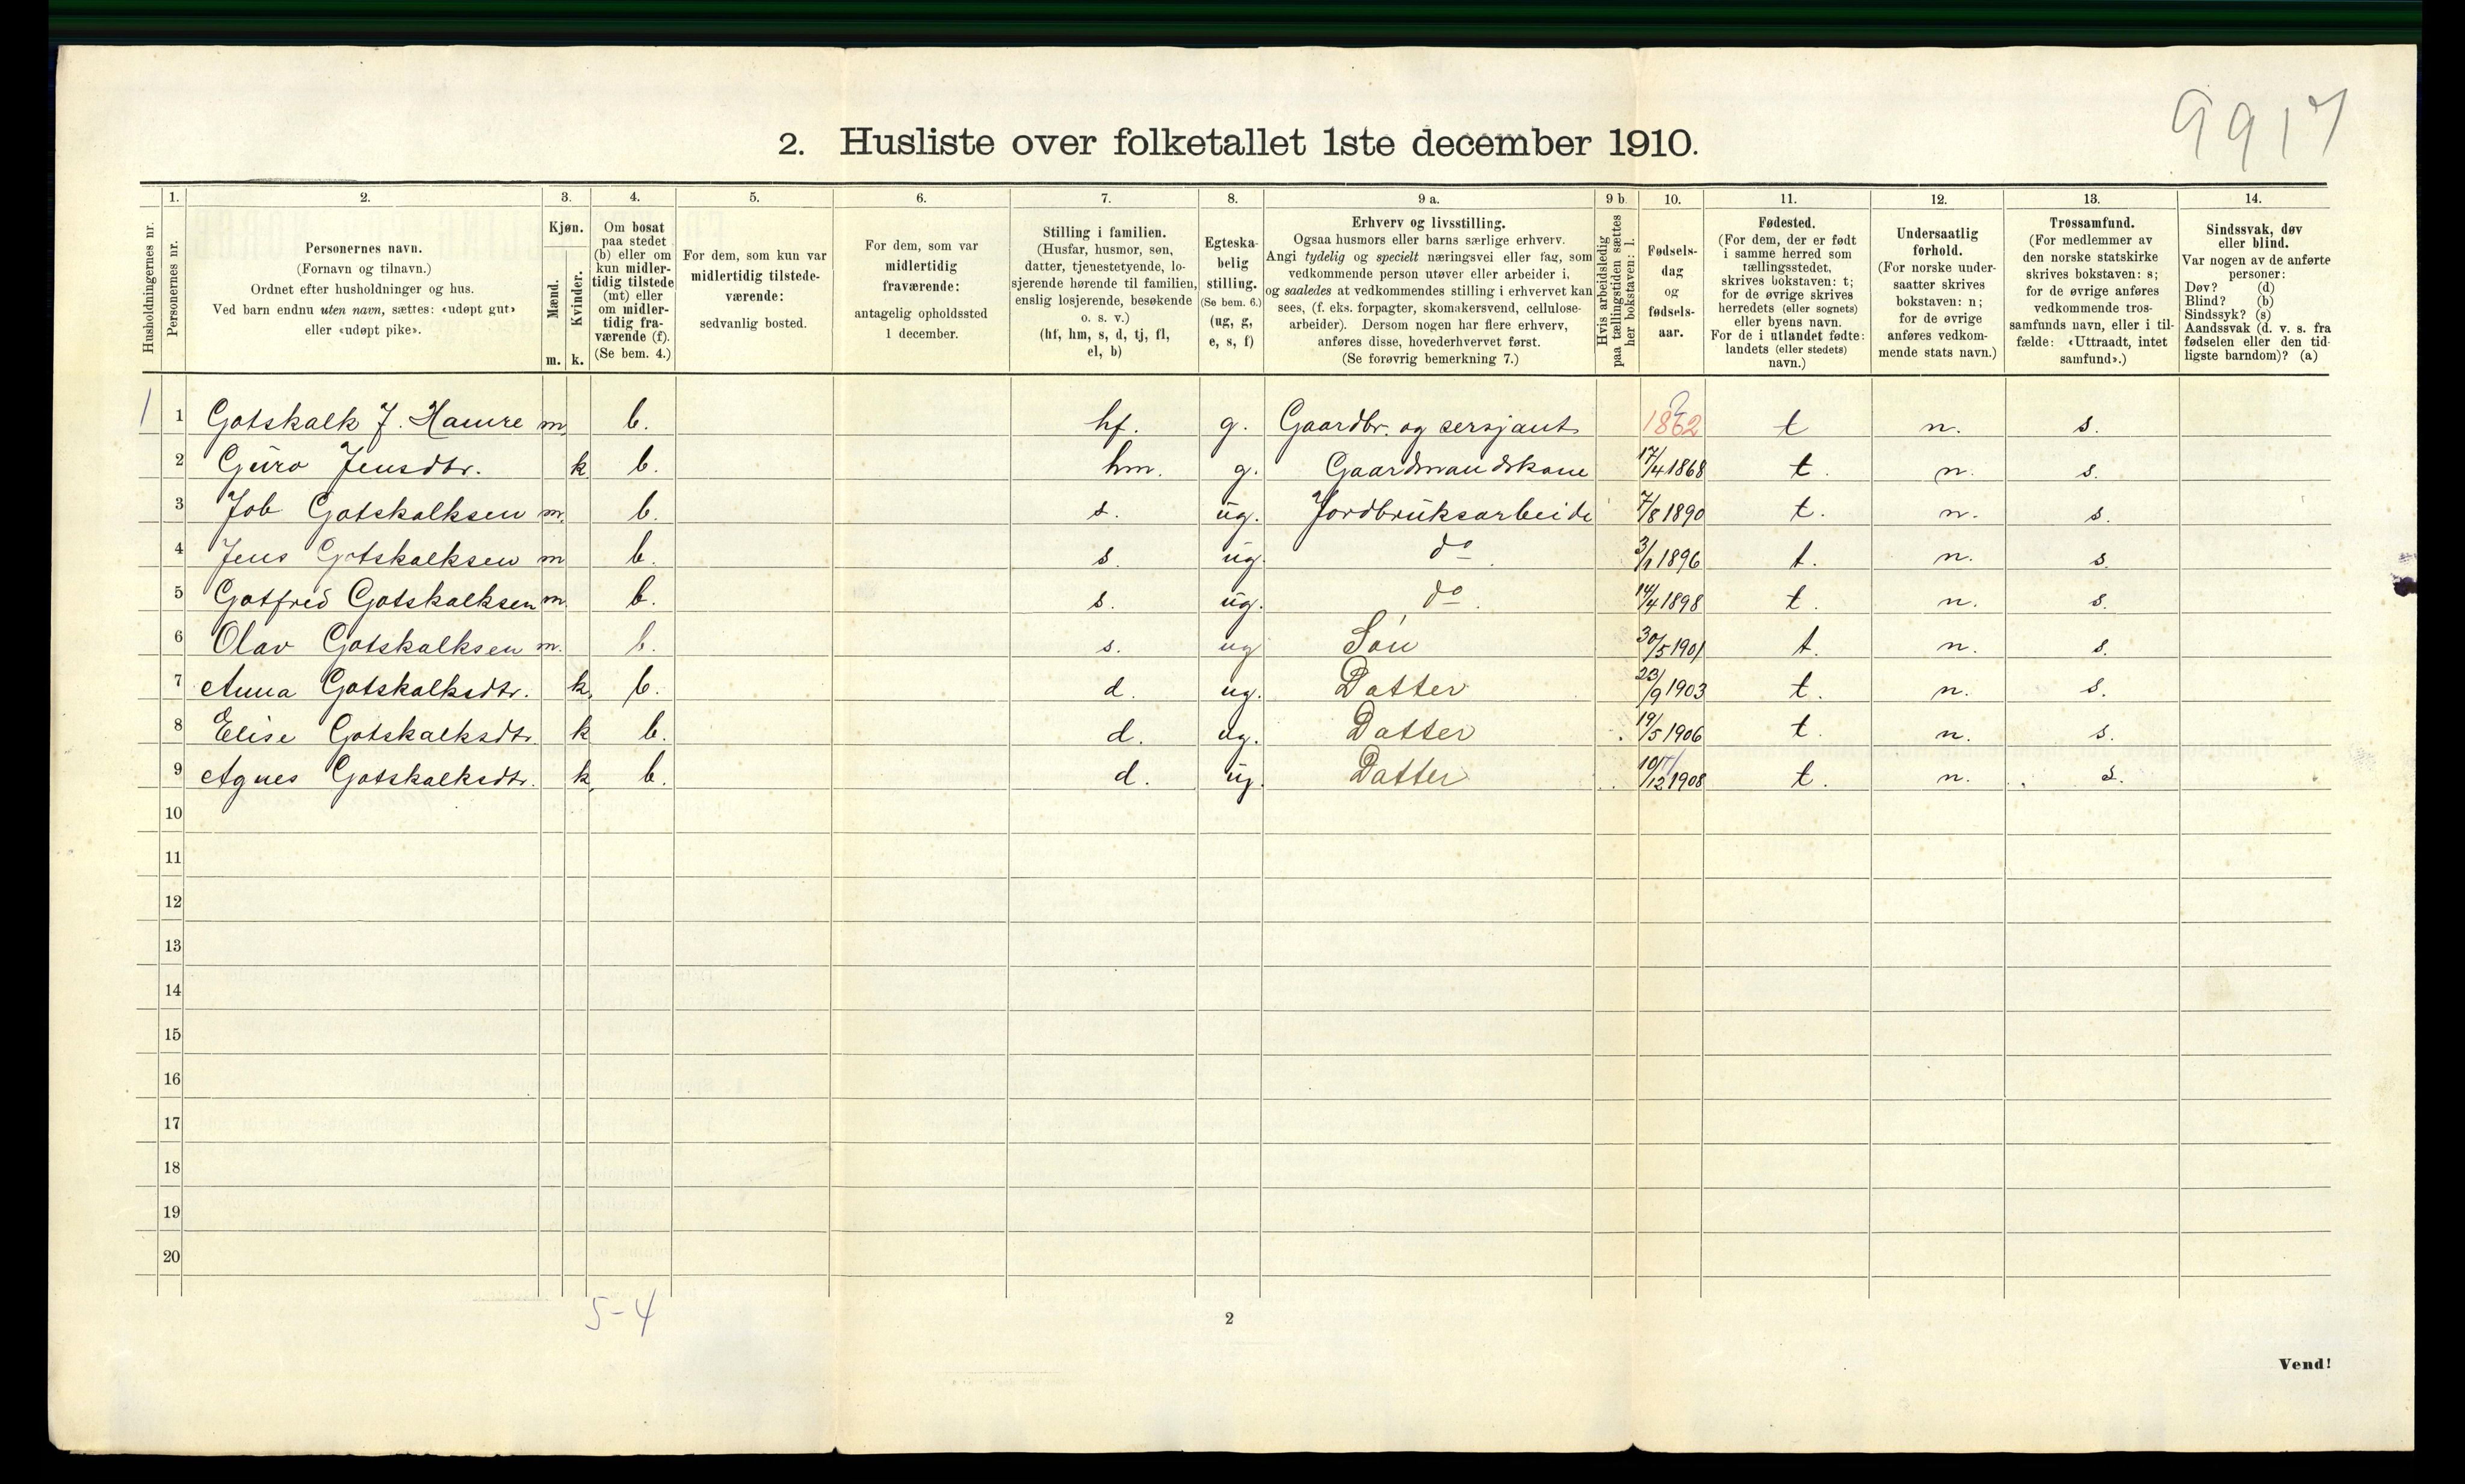 9917
2. Husliste over folketallet 1ste december 1910.
Husholdningernes nr.
1.
Personernes nr.
2.
Personernes navn.
(Fornavn og tilnavn.)
Ordnet efter husholdninger og hus.
Ved barn endnu uten navn, sættes: «udøpt gut»
eller «udøpt pike».
3.
Kjøn.
Mænd.
Kvinder.
m. k.
4.
Om bosat
paa stedet
(b) eller om
kun midler-
tidig tilstede
(mt) eller
om midler-
tidig fra-
værende (f).
(Se bem. 4.)
5.
For dem, som kun var
midlertidig tilstede-
værende:
sedvanlig bosted.
6.
For dem, som var
midlertidig
fraværende:
antagelig opholdssted
1 december.
7.
Stilling i familien.
(Husfar, husmor, søn,
datter, tjenestetyende, lo-
sjerende hørende til familien,
enslig losjerende, besøkende
o. s. v.)
(hf, hm, s, d, tj, fl,
el, b)
8.
Egteska-
belig
stilling.
(Se bem. 6.)
(ug, g,
e, s, f)
9 a.
Erhverv og livsstilling.
Ogsaa husmors eller barns særlige erhverv.
Angi tydelig og specielt næringsvei eller fag, som
vedkommende person utøver eller arbeider i,
og saaledes at vedkommendes stilling i erhvervet kan
sees, (f. eks. forpagter, skomakersvend, cellulose-
arbeider). Dersom nogen har flere erhverv,
anføres disse, hovederhvervet først.
(Se forøvrig bemerkning 7.)
9 b.
Hvis arbeidsledig
paa tællingstiden sættes
her bokstaven: l.
10.
Fødsels-
dag
og
fødsels-
aar.
11.
Fødested.
(For dem, der er født
i samme herred som
tællingsstedet,
skrives bokstaven: t;
for de øvrige skrives
herredets (eller sognets)
eller byens navn.
For de i utlandet fødte:
landets (eller stedets)
navn.)
12.
Undersaatlig
forhold.
(For norske under-
saatter skrives
bokstaven: n;
for de øvrige
anføres vedkom-
mende stats navn.)
13.
Trossamfund.
(For medlemmer av
den norske statskirke
skrives bokstaven: s;
for de øvrige anføres
vedkommende tros-
samfunds navn, eller i til-
fælde: «Uttraadt, intet
samfund».)
14.
Sindssvak, døv
eller blind.
Var nogen av de anførte
personer:
Døv? (d)
Blind? (b)
Sindssyk? (s)
Aandssvak (d. v. s. fra
fødselen eller den tid-
ligste barndom)? (a)
1 1 Gotskalk J. Hamre m. b. hf. g. Gaardbr. og sersjant 1862 t n. s.
2 Guro Jensdtr. k b. hm. g. Gaardmandskone 17/4 1868 t. n. s.
3 Job Gotskalksen m. b. s. ug. Jordbruksarbeide 7/8 1890 t. n. s.
4 Jens Gotskalksen m b. s. ug. do 3/1 1896 t. n. s.
5 Gotfred Gotskalksen m. b. s. ug. do. 14/4 1898 t. n. s.
6 Olav Gotskalksen m. b. s. ug Søn 30/5 1901 t. n. s.
7 Anna Gotskalksdtr. k. b. d. ug. Datter 23/9 1903 t. n. s.
8 Elise Gotskalksdtr. k b. d. ug. Datter 19/5 1906 t. n. s.
9 Agnes Gotskalksdtr. k. b. d. ug. Datter 10/12 1908 t. n. s.
10
11
12
13
14
15
16
17
18
19
20
5-4
2
Vend!